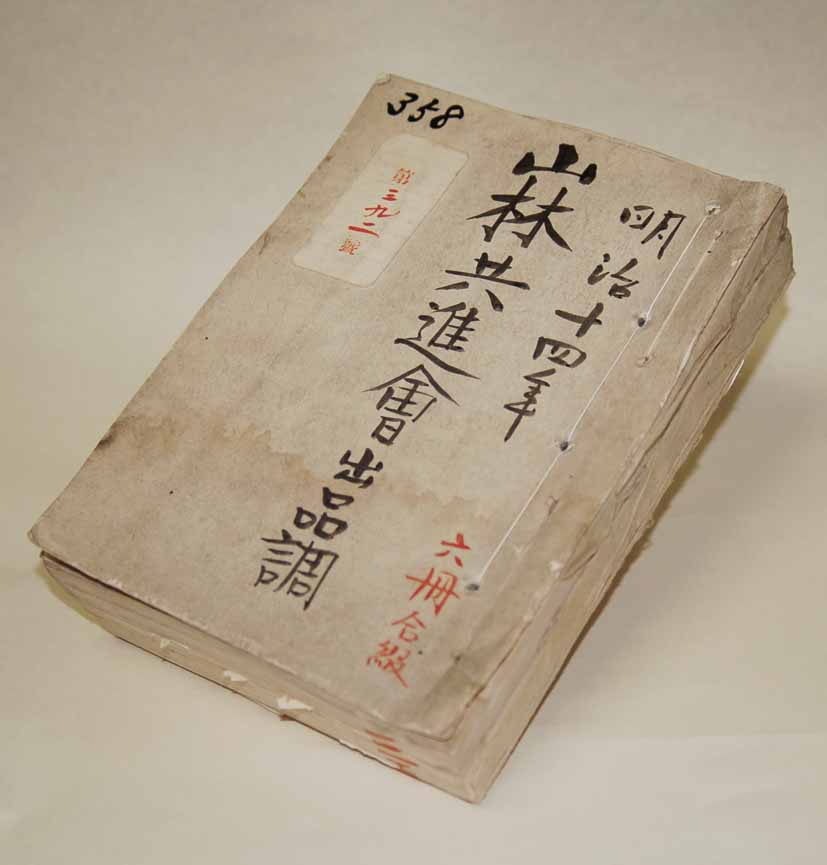 明治十四年
山林共進會出品調
358
第三九二號
六冊合綴